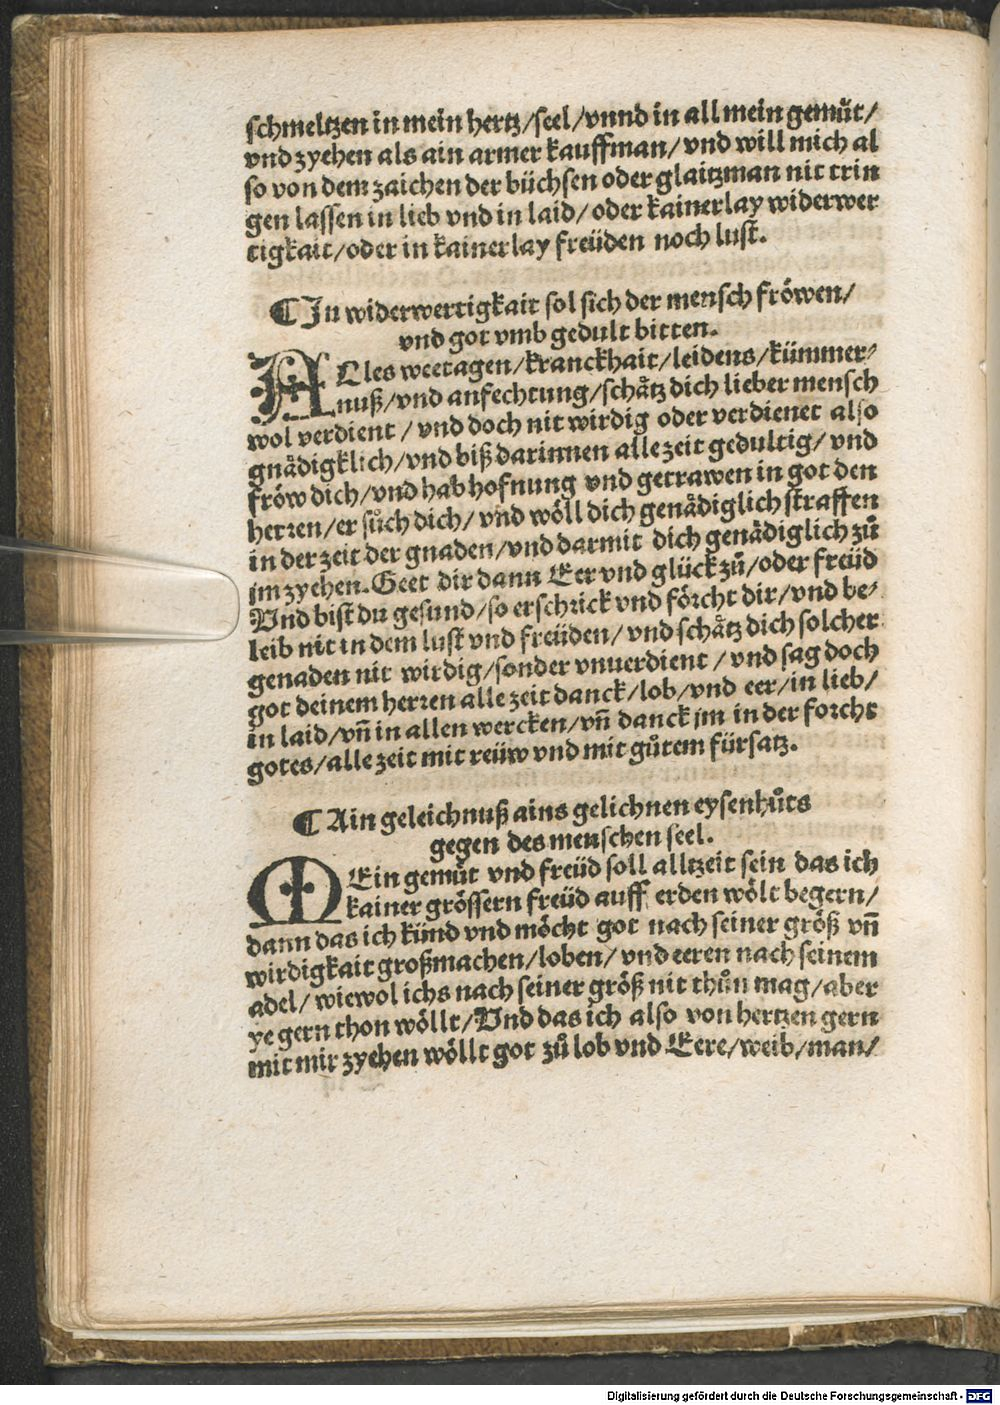 schmeltzen in mein hertz/seel/vnnd in all mein gemuͤt/
vnd zyehen als ain armer kauffman/vnd will mich al
so von dem zaichen der büchsen oder glaitzman nit trin
gen lassen in lieb vnd in laid/oder kainerlay widerwer
tigkait/oder in kainerlay freüden noch lust.
¶ In widerwertigkait sol sich der mensch fröwen/
vnd got vmb gedult bitten.
ALles weetagen/kranckhait/leidens/kümmer⸗
nuß/vnd anfechtung/schaͤtz dich lieber mensch
wol verdient/vnd doch nit wirdig oder verdienet also
gnaͤdigklich/vnd biß darinnen alle zeit gedultig/vnd
froͤw dich/vnd hab hofnung vnd getrawen in got den
herren/er suͦch dich/vnd woͤll dich genaͤdiglich straffen
in der zeit der gnaden/vnd darmit dich genaͤdiglich zuͦ
jm zyehen. Geet dir dann Eer vnd glück zuͦ/oder freüd
Vnd bist du gesund/so erschrick vnd foͤrcht dir/vnd be⸗
leib nit in dem lust vnd freüden/vnd schaͤtz dich solcher
genaden nit wirdig/sonder vnuerdient/vnd sag doch
got deinem herren alle zeit danck/lob/vnd eer/in lieb/
in laid/vn̄ in allen wercken/vn̄ danck jm in der forcht
gotes/alle zeit mit reüw vnd mit guͦtem fürsatz.
¶ Ain geleichnuß ains gelichnen eysenhuͦts
gegen des menschen seel.
MEin gemuͤt vnd freüd soll alltzeit sein das ich
kainer groͤssern freüd auff erden woͤlt begern/
dann das ich künd vnd moͤcht got nach seiner groͤß vn̄
wirdigkait großmachen/loben/vnd eeren nach seinem
adel/wiewol ichs nach seiner groͤß nit thuͦn mag/aber
ye gern thon woͤllt/Vnd das ich also von hertzen gern
mit mir zyehen woͤllt got zuͦ lob vnd Eere/weib/man/
Digitalisierung gefördert durch die Deutsche Forschungsgemeinschaft - DFG